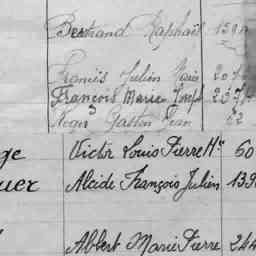 Bertrand Raphaël 159
Francis Julien Marie 20
François Marie Joseph 237
Roger Gaston Jean 62
ge Victor Louis Pierre Mie 60
uer Alcide François Julien 139
Albert Marie Pierre 244